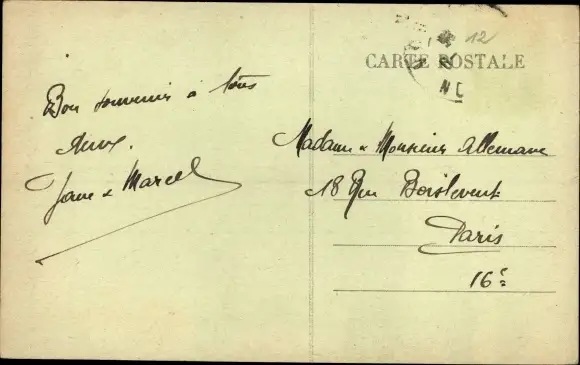 Bon souvenir à tous
deux.
Jane & Marcel
12
CARTE POSTALE
Madame & Monsieur Allemane
18 Rue Boislevent
Paris
16e